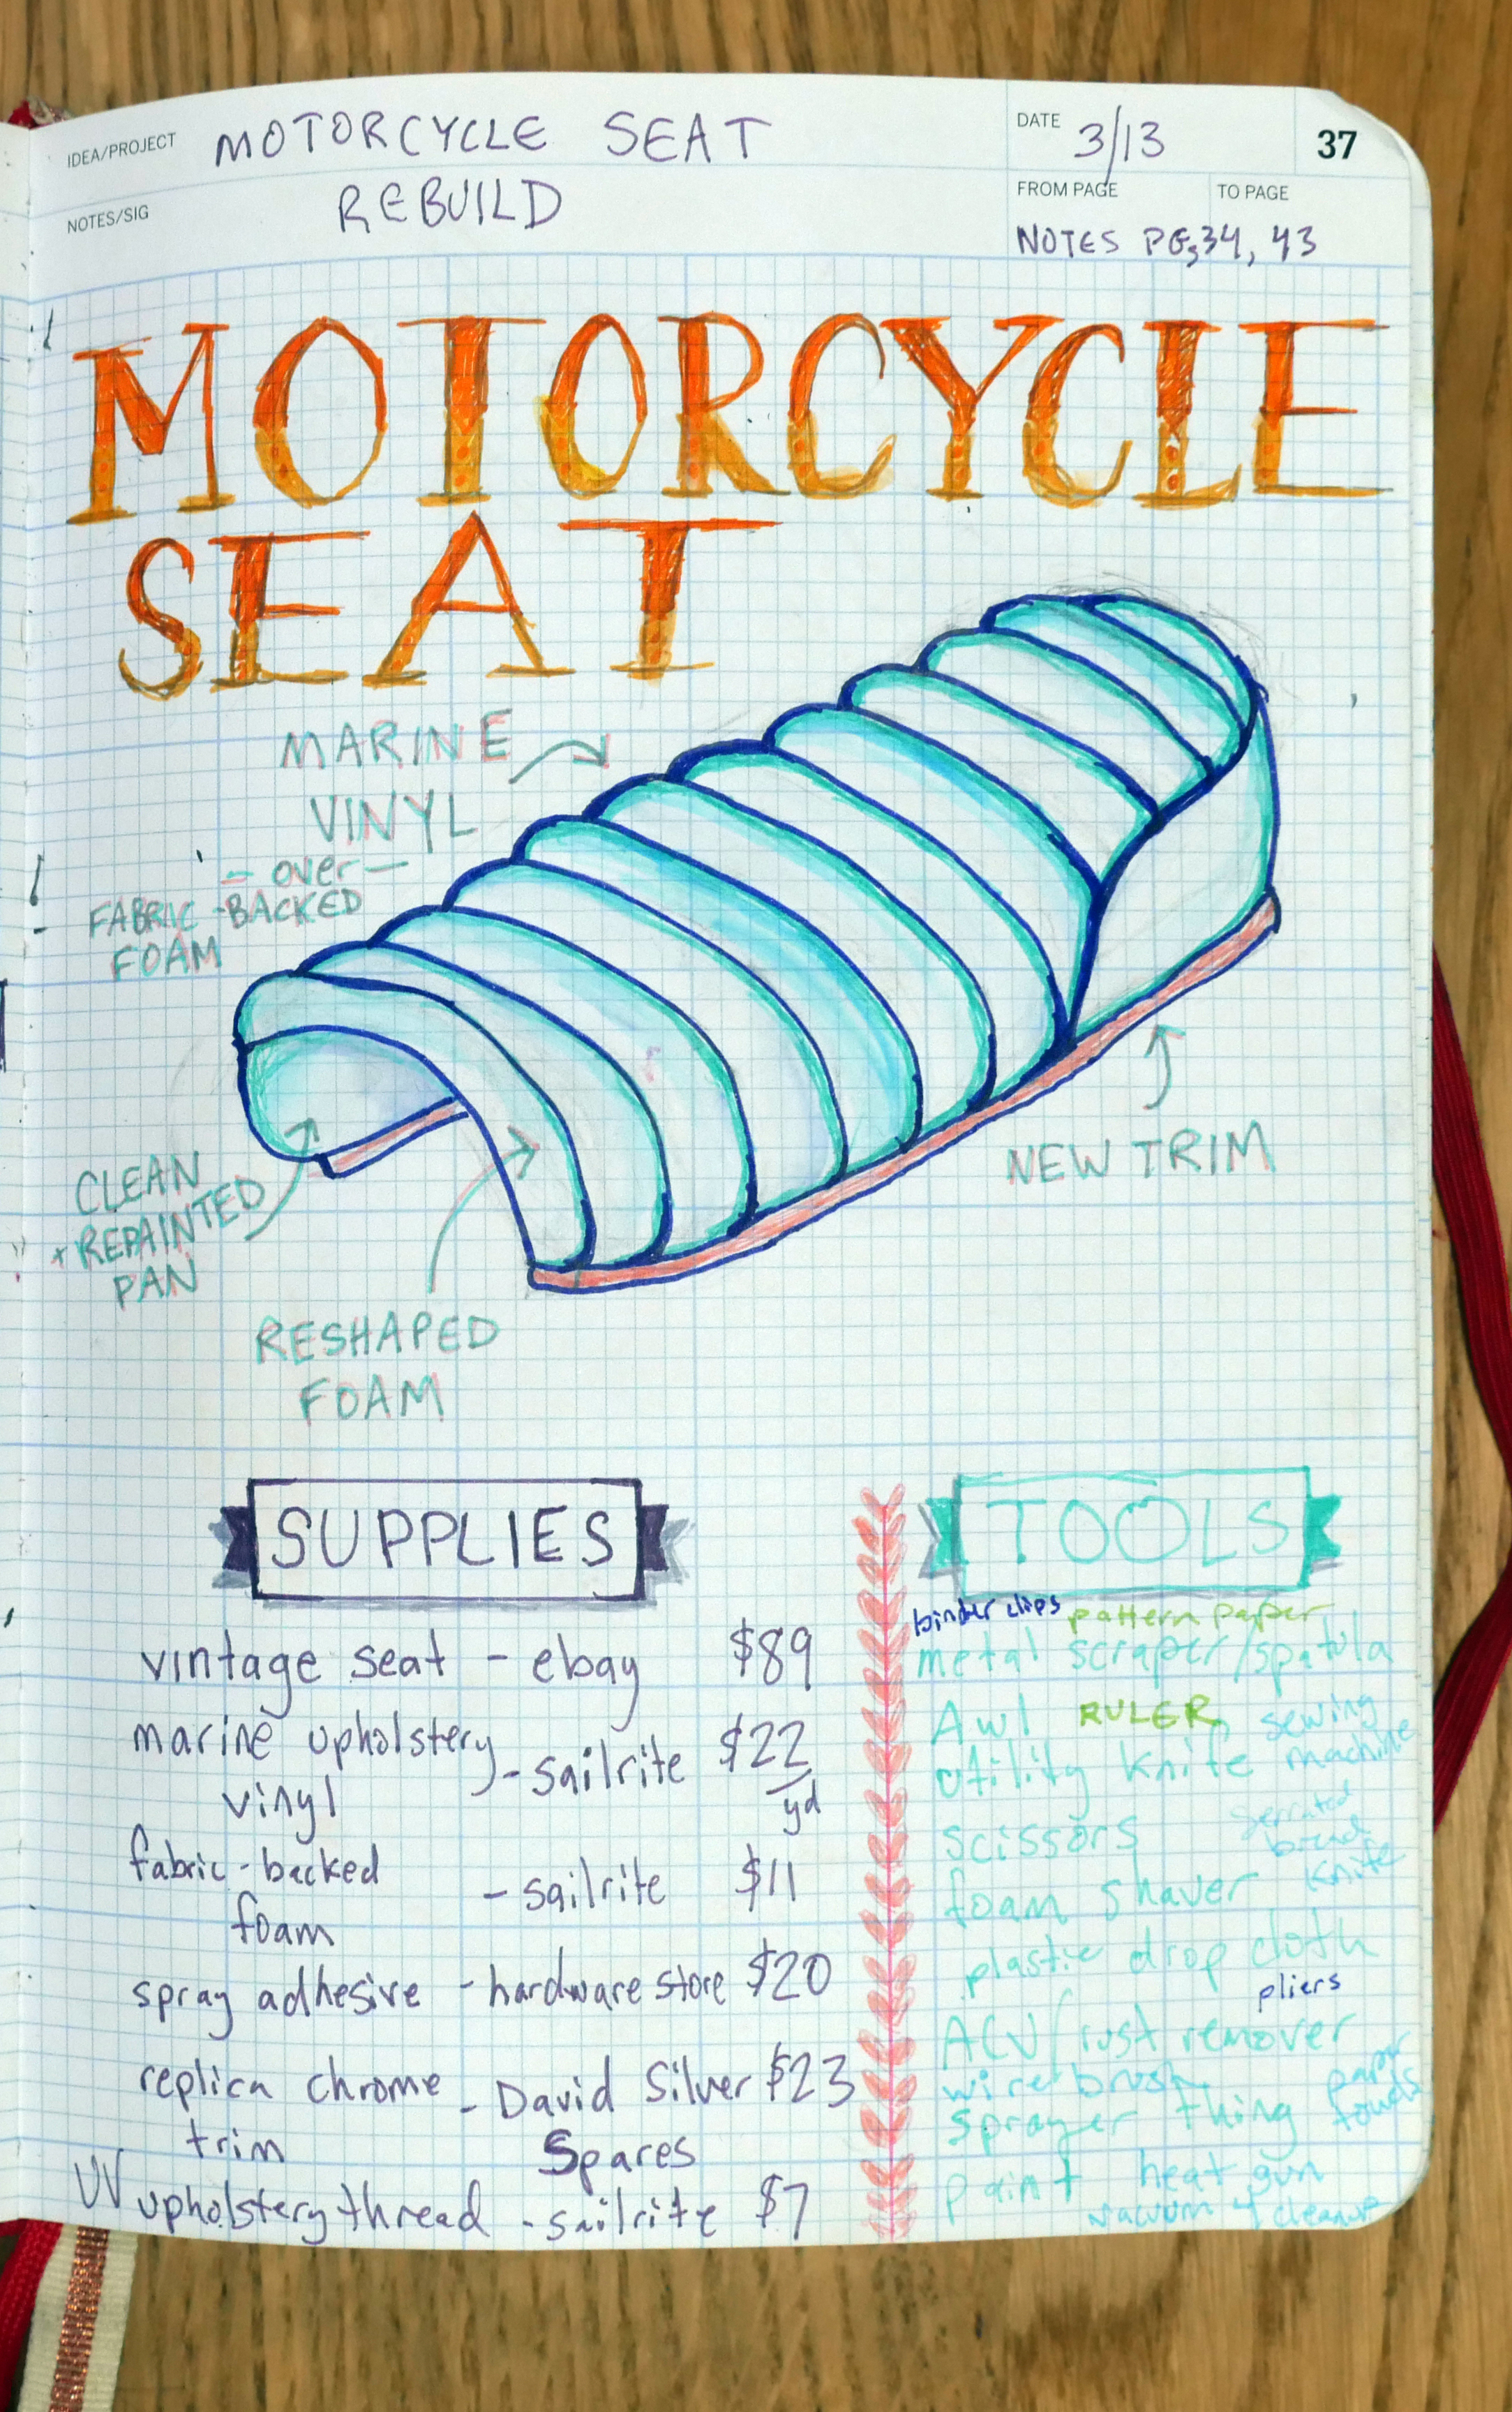 IDEA/PROJECT MOTORCYCLE SEAT
DATE 3/13
37
NOTES/SIG REBUILD
FROM PAGE TO PAGE
NOTES PG,34, 43
MOTORCYCLE
SEAT
MARINE
VINYL
- over -
FABRIC-BACKED
FOAM
CLEAN
+ REPAINTED
PAN
RESHAPED
FOAM
NEW TRIM
SUPPLIES
vintage seat - ebay $89
marine upholstery
vinyl - sailrite $22
yd
fabric-backed
foam - sailrite $11
spray adhesive - hardware store $20
replica chrome
trim - David Silver $23
Spares
UV upholstery thread - sailrite $7
TOOLS
binder clips pattern paper
metal scraper/spatula
Awl RULER sewing
machine
utility knife
scissors
serrated
bread
knife
foam shaver
plastic drop cloth
pliers
ACV/rust remover
wire brush
paper
towels
sprayer thing
paint heat gun
vacuum 4 cleanup